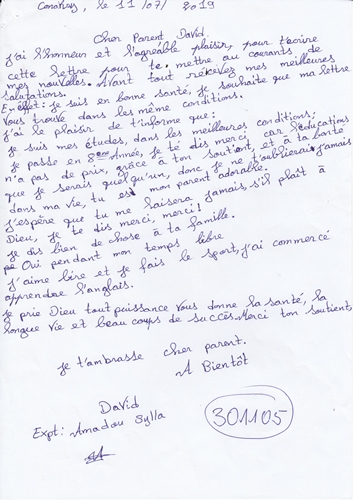 Conakry, le 11/07/ 2019
Cher Parent David.
j'ai l'honneur et l'agréable plaisir, pour t'écrire
cette lettre pour te mettre au courants de
mes nouvelles. Avant tout recevez mes meilleures
salutations.
En effet: je suis en bonne santé, je souhaite que ma lettre
vous trouve dans les même conditions.
j'ai le plaisir de t'informe que:
je suis mes études, dans les meilleures conditions;
je passe en 8ème Année, je te dis merci, car l'éducations
n'a pas de prix, grâce à ton soutient, et à ta bonté
que je serais quelqu'un, donc je ne t'oublierai jamais
dans ma vie, tu es mon parent adorable.
j'espère que tu me laisera jamais, s'il plast à
Dieu, je te dis merci, merci!
je dis bien de chose à ta famille.
Oui pendant mon temps libre
j'aime lire et je fais le sport, j'ai commercé
apprendre l'anglais.
je prie Dieu tout puissance vous donne la santé, la
longue vie et beau coups de succès. Merci ton soutient,
je t'ambrasse cher parent.
A Bientôt
David
Expt: Amadou Sylla
301105